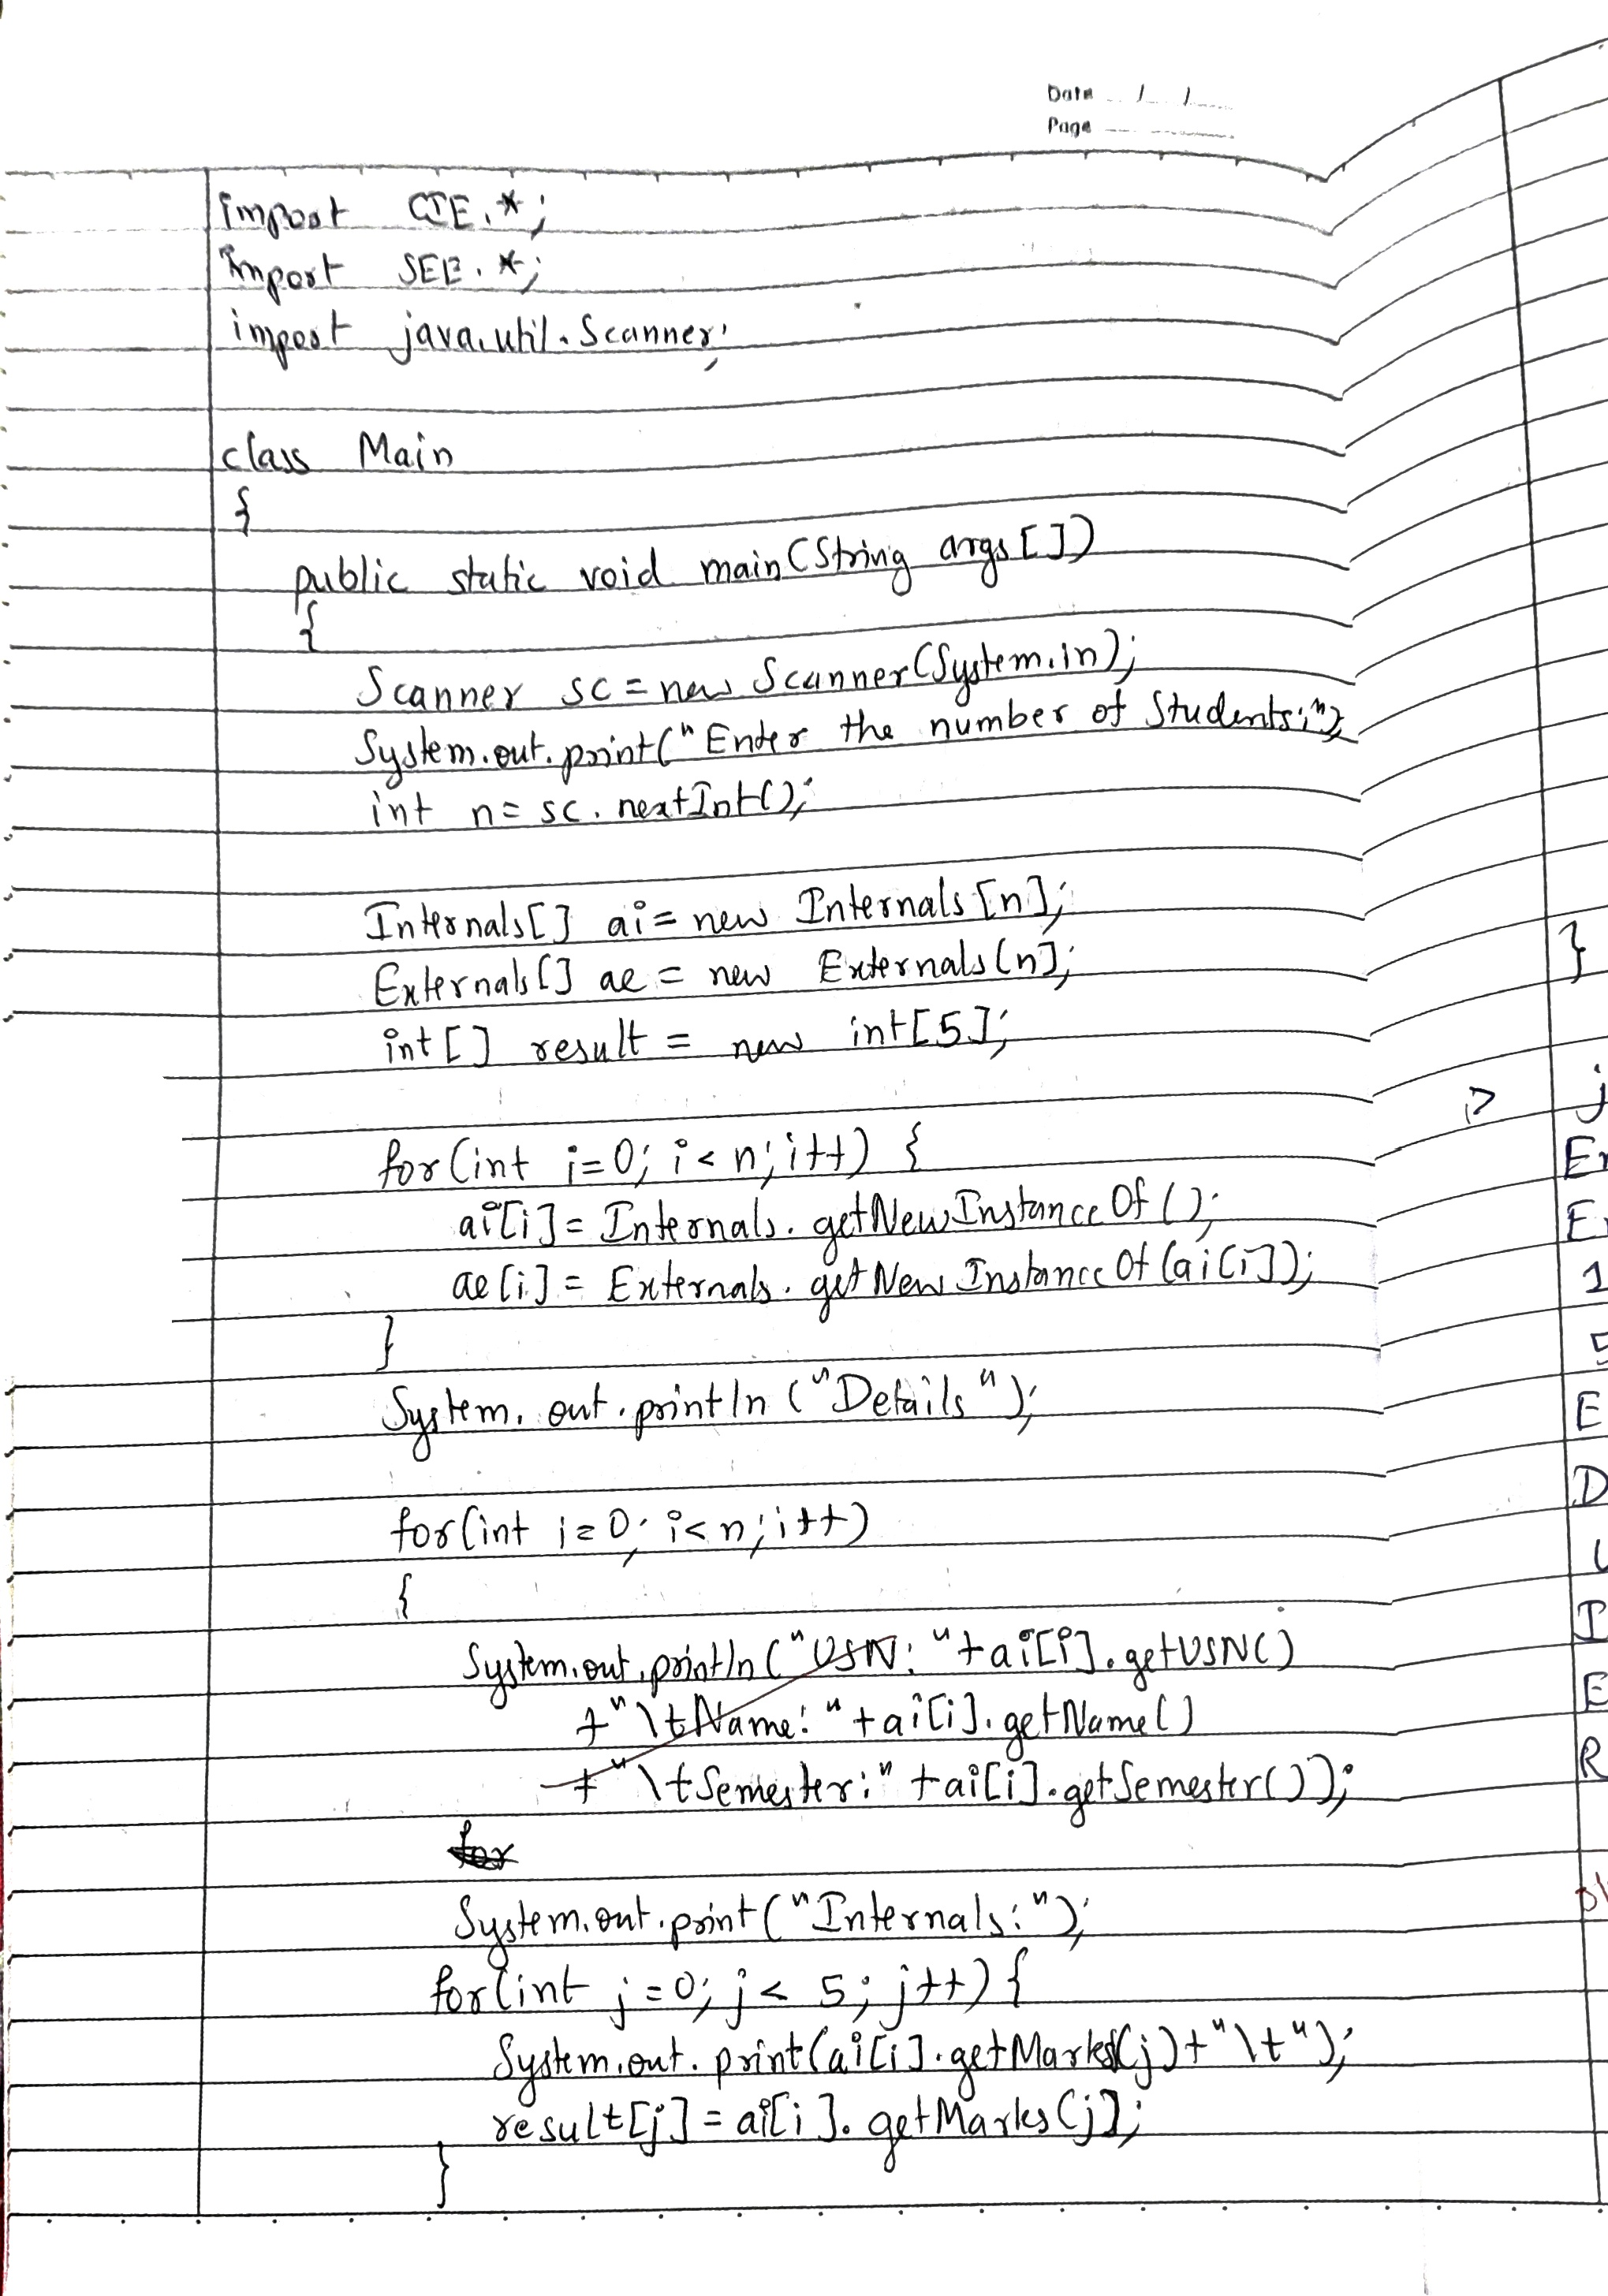 Date / /
Page
import CIE.*;
import SEE.*;
import java.util.Scanner;
class Main
{
public static void main(String args[])
{
Scanner sc = new Scanner(System.in);
System.out.print("Enter the number of Students:");
int n= sc.nextInt();
Internals[] ai = new Internals[n];
Externals[] ae = new Externals[n];
int[] result = new int[5];
for(int i=0; i<n; i++) {
ai[i] = Internals.getNewInstanceOf();
ae[i] = Externals.getNewInstanceOf(ai[i]);
}
System.out.println("Details");
for(int i=0; i<n; i++)
{
System.out.println("USN: "+ai[i].getUSN()
+"\tName: "+ai[i].getName()
+"\tSemester:"+ai[i].getSemester());
for
System.out.print("Internals:");
for(int j=0; j<5; j++) {
System.out.print(ai[i].getMarks(j)+"\t");
result[j] = ai[i].getMarks(j);
}
}
j
En
E
1
5
E
D
I
E
R